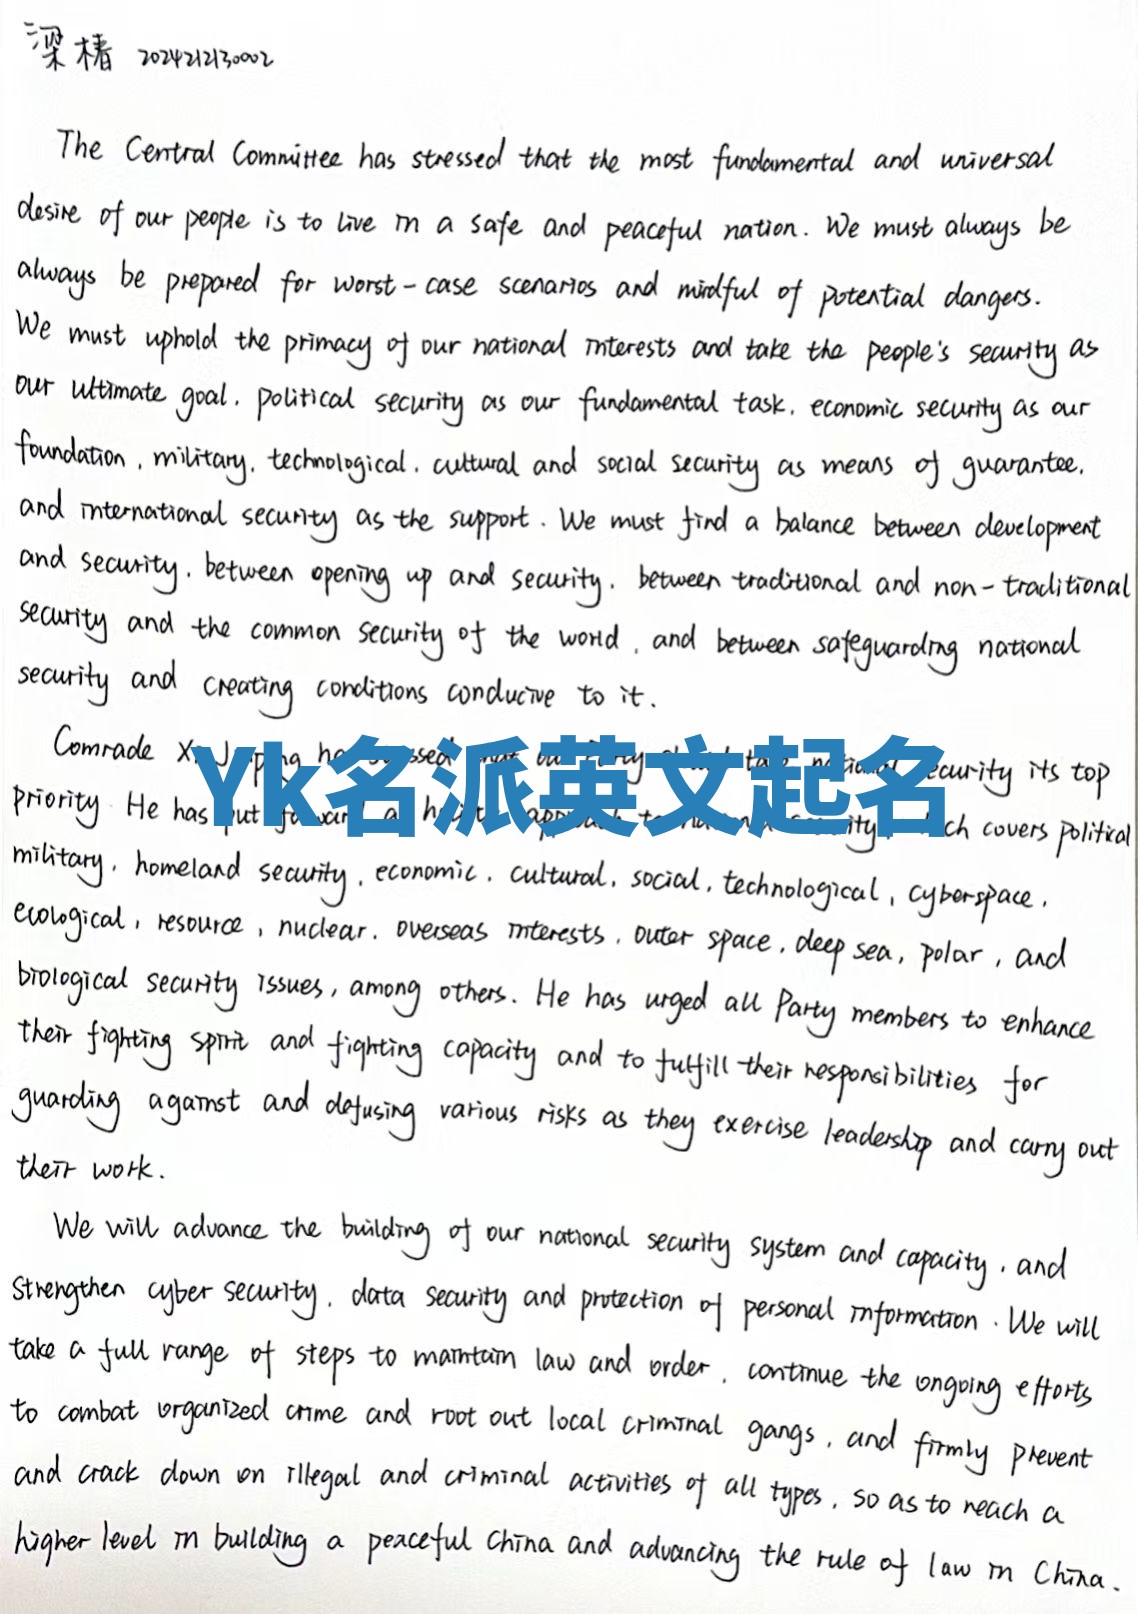 梁椿 2024212130002
The Central Committee has stressed that the most fundamental and universal
desire of our people is to live in a safe and peaceful nation. We must always be
always be prepared for worst-case scenarios and mindful of potential dangers.
We must uphold the primacy of our national interests and take the people's security as
our ultimate goal, political security as our fundamental task, economic security as our
foundation, military, technological, cultural and social security as means of guarantee,
and international security as the support. We must find a balance between development
and security, between opening up and security, between traditional and non-traditional
security and the common security of the world, and between safeguarding national
security and creating conditions conducive to it.
Comrade
Yk名派英文起名
security its top
priority. He has put covers political
military, homeland security, economic, cultural, social, technological, cyberspace,
ecological, resource, nuclear, overseas interests, outer space, deep sea, polar, and
biological security issues, among others. He has urged all Party members to enhance
their fighting spirit and fighting capacity and to fulfill their responsibilities for
guarding against and defusing various risks as they exercise leadership and carry out
their work.
We will advance the building of our national security system and capacity, and
strengthen cyber security, data security and protection of personal information. We will
take a full range of steps to maintain law and order, continue the ongoing efforts
to combat organized crime and root out local criminal gangs, and firmly prevent
and crack down on illegal and criminal activities of all types, so as to reach a
higher level in building a peaceful China and advancing the rule of law in China.